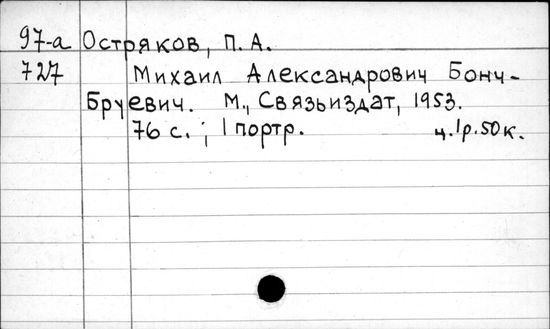 97-а Остряков, П. А.
727 Михаил Александрович Бонч-
Бруевич. М., Связьиздат, 1953.
76 с.; 1 портр. ц. 1р. 50к.